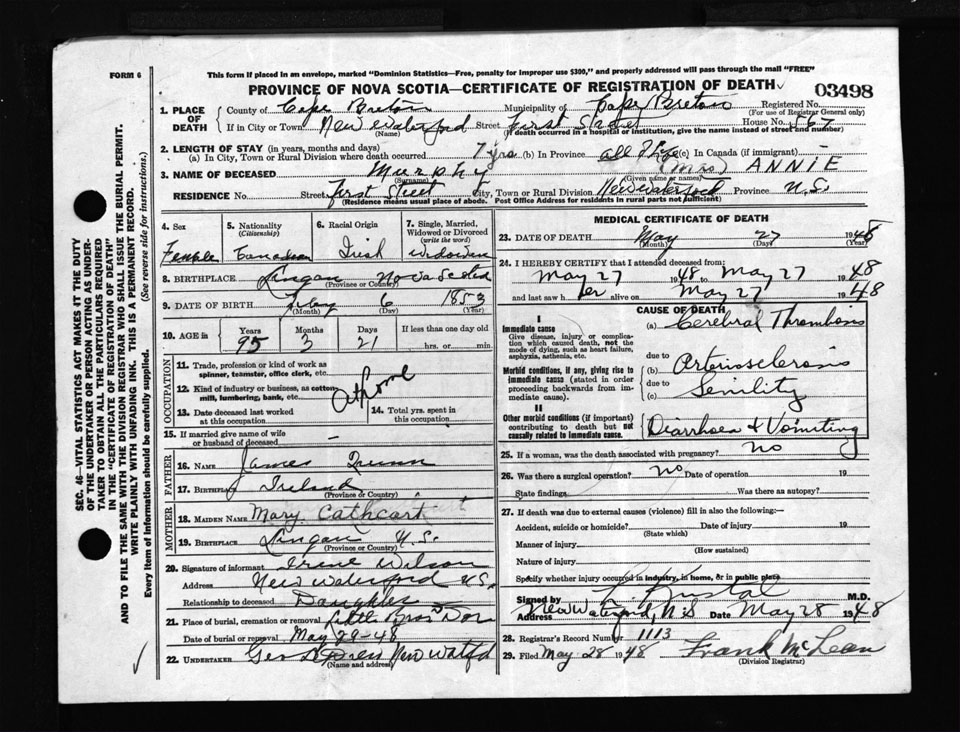 FORM 6
This form if placed in an envelope, marked "Dominion Statistics—Free, penalty for improper use $300," and properly addressed will pass through the mail "FREE"
PROVINCE OF NOVA SCOTIA—CERTIFICATE OF REGISTRATION OF DEATH
03498
1. PLACE OF DEATH
County of Cape Breton Municipality of Cape Breton Registered No.
(For use of Registrar General only)
If in City or Town New Waterford Street First Street House No. 567
(Name) (If death occurred in a hospital or institution, give the name instead of street and number)
2. LENGTH OF STAY (in years, months and days)
(a) In City, Town or Rural Division where death occurred 7 yrs (b) In Province all Life (c) In Canada (if immigrant)
3. NAME OF DECEASED Murphy (Mrs) ANNIE
(Surname) (Given name or names)
RESIDENCE No. Street First Street City, Town or Rural Division Province N.S.
(Residence means usual place of abode. Post Office Address for residents in rural parts not sufficient)
4. Sex
Female
5. Nationality
(Citizenship)
Canadian
6. Racial Origin
Irish
7. Single, Married, Widowed or Divorced
(write the word)
Widow
8. BIRTHPLACE Lingan Nova Scotia
(Province or Country)
9. DATE OF BIRTH 6 1853
(Month) (Day) (Year)
10. AGE in Years Months Days If less than one day old
95 3 21 hrs. or min.
OCCUPATION
11. Trade, profession or kind of work as spinner, teamster, office clerk, etc.
12. Kind of industry or business, as cotton mill, lumbering, bank, etc.
At home
13. Date deceased last worked at this occupation
14. Total yrs. spent in this occupation
15. If married give name of wife or husband of deceased —
FATHER
16. NAME James Quinn
17. BIRTHPLACE Ireland
(Province or Country)
MOTHER
18. MAIDEN NAME Mary Cathcart
19. BIRTHPLACE Lingan N.S.
(Province or Country)
20. Signature of informant Irene Wilson
Address New Waterford N.S.
Relationship to deceased Daughter
21. Place of burial, cremation or removal Little Bras Dor
Date of burial or removal May 29-48
22. UNDERTAKER Geo New Watfd
(Name and address)
MEDICAL CERTIFICATE OF DEATH
23. DATE OF DEATH May 27 1948
(Month) (Day) (Year)
24. I HEREBY CERTIFY that I attended deceased from:
May 27 1948 to May 27 1948
and last saw her alive on May 27 1948
CAUSE OF DEATH
I
Immediate cause
Give disease, injury or complication which caused death, not the mode of dying, such as heart failure, asphyxia, asthenia, etc.
(a) Cerebral Thrombosis
due to
Morbid conditions, if any, giving rise to immediate cause (stated in order proceeding backwards from immediate cause).
Arteriosclerosis
due to
(c) Senility
II
Other morbid conditions (if important) contributing to death but not causally related to immediate cause.
Diarrhoea & Vomiting
25. If a woman, was the death associated with pregnancy? no
26. Was there a surgical operation? no Date of operation 19
State findings Was there an autopsy?
27. If death was due to external causes (violence) fill in also the following:—
Accident, suicide or homicide? Date of injury 19
(State which)
Manner of injury
(How sustained)
Nature of injury
Specify whether injury occurred in industry, in home, or in public place
Signed by M.D.
Address New Waterford, N.S Date May 28 1948
28. Registrar's Record Number 1113
29. Filed May 28 1948 Frank McLean
(Division Registrar)
SEC. 46—VITAL STATISTICS ACT MAKES IT THE DUTY
OF THE UNDERTAKER OR PERSON ACTING AS UNDERTAKER TO OBTAIN ALL THE PARTICULARS REQUIRED
IN THE "CERTIFICATE OF REGISTRATION OF DEATH"
AND TO FILE THE SAME WITH THE DIVISION REGISTRAR WHO SHALL ISSUE THE BURIAL PERMIT.
WRITE PLAINLY WITH UNFADING INK. THIS IS A PERMANENT RECORD.
Every item of information should be carefully supplied. (See reverse side for instructions.)